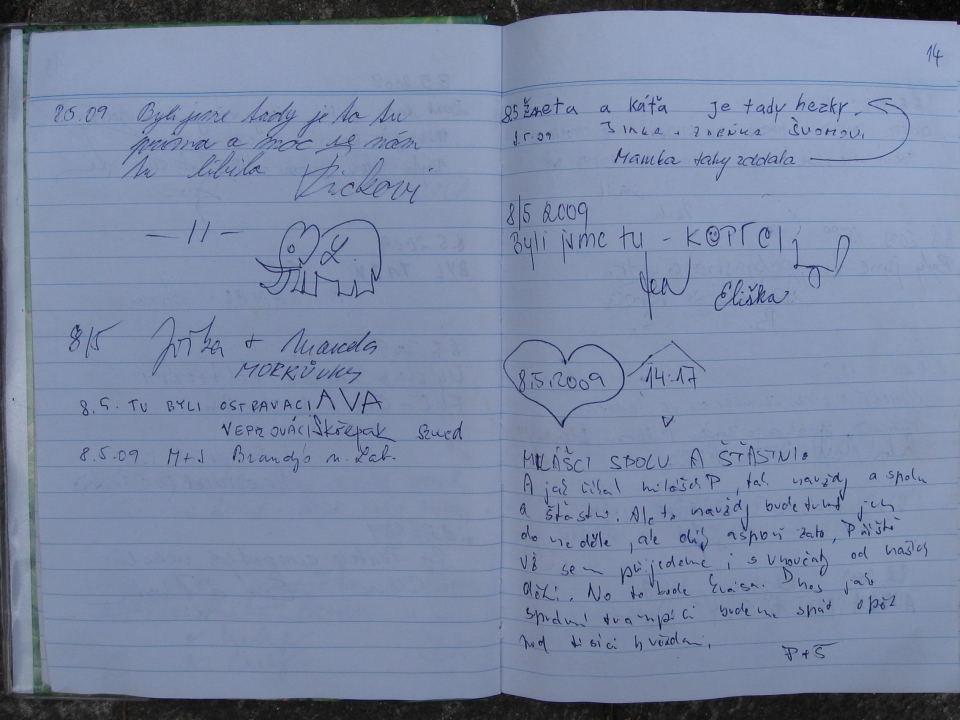 8.5.09 Byli jsme tady je to tu
a moc se nám
tu líbilo
— 11 —
L.
8/5 Jořka + Manda
8.5. TU BYLI OSTRAVACI AVA
8.5.09 M+J Brandýs n. Lab.
14
8.5 Žaneta a Káťa je tady hezky.
8.5.09 ZDEŇKA
Mamka tahy zddala
8/5 2009
Byli jsme tu - KOPÍČCI
Jen
Eliška
8.5.2009 14:17
MILÁŠCI SPOLU A ŠŤASTNI.
A jak říkal P, tak navždy a spolu
a šťastni. Ale to navždy bude trvat jen
do neděle, ale díky aspoň zato, Příště
už sem přijedeme i s vnoučaty od našich
dětí. No to bude krása. Dnes jako
správní trampíci budeme spát opět
pod tisíci hvězdami.
P+Š